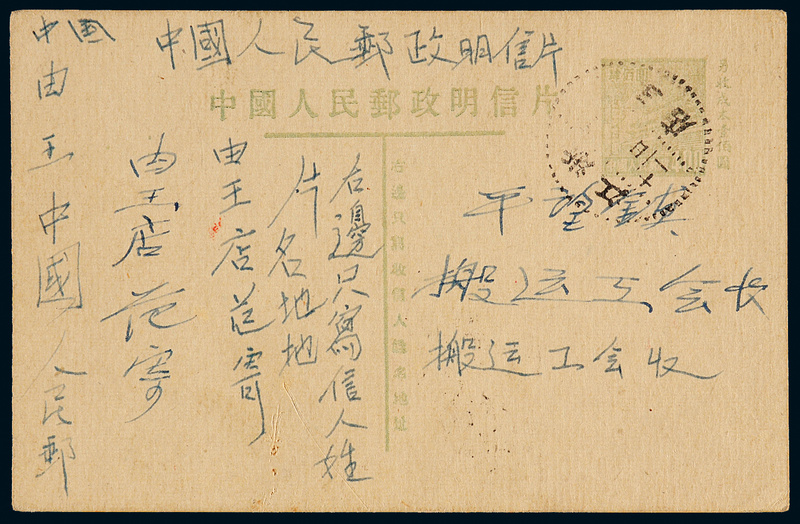 中国
中國人民郵政明信片
中國人民郵政明信片
平望鎮
搬运工会长
搬运工会收
右邊只寫信人姓
片名地地
由王店范寄
由王店范寄
由王中國人民郵
右邊只寫收信人姓名地址